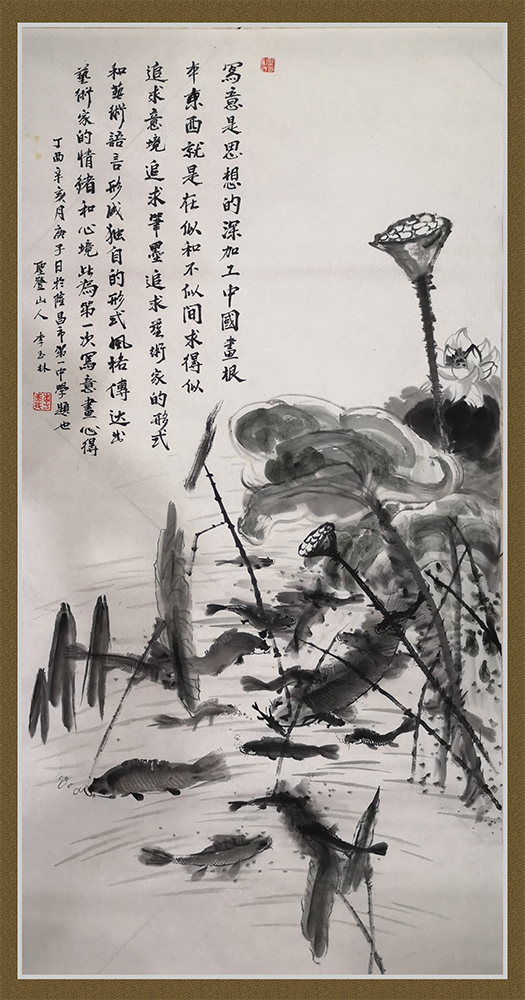 寫意是思想的深加工中國畫根
本東西就是在似和不似間求得似
追求意境追求筆墨追求藝術家的形式
和藝術語言形成独自的形式风格傳达出
藝術家的情緒和心境此為第一次寫意畫心得
丁酉辛亥月庚子日於陸昌市第一中學題也
聖登山人 李玉林